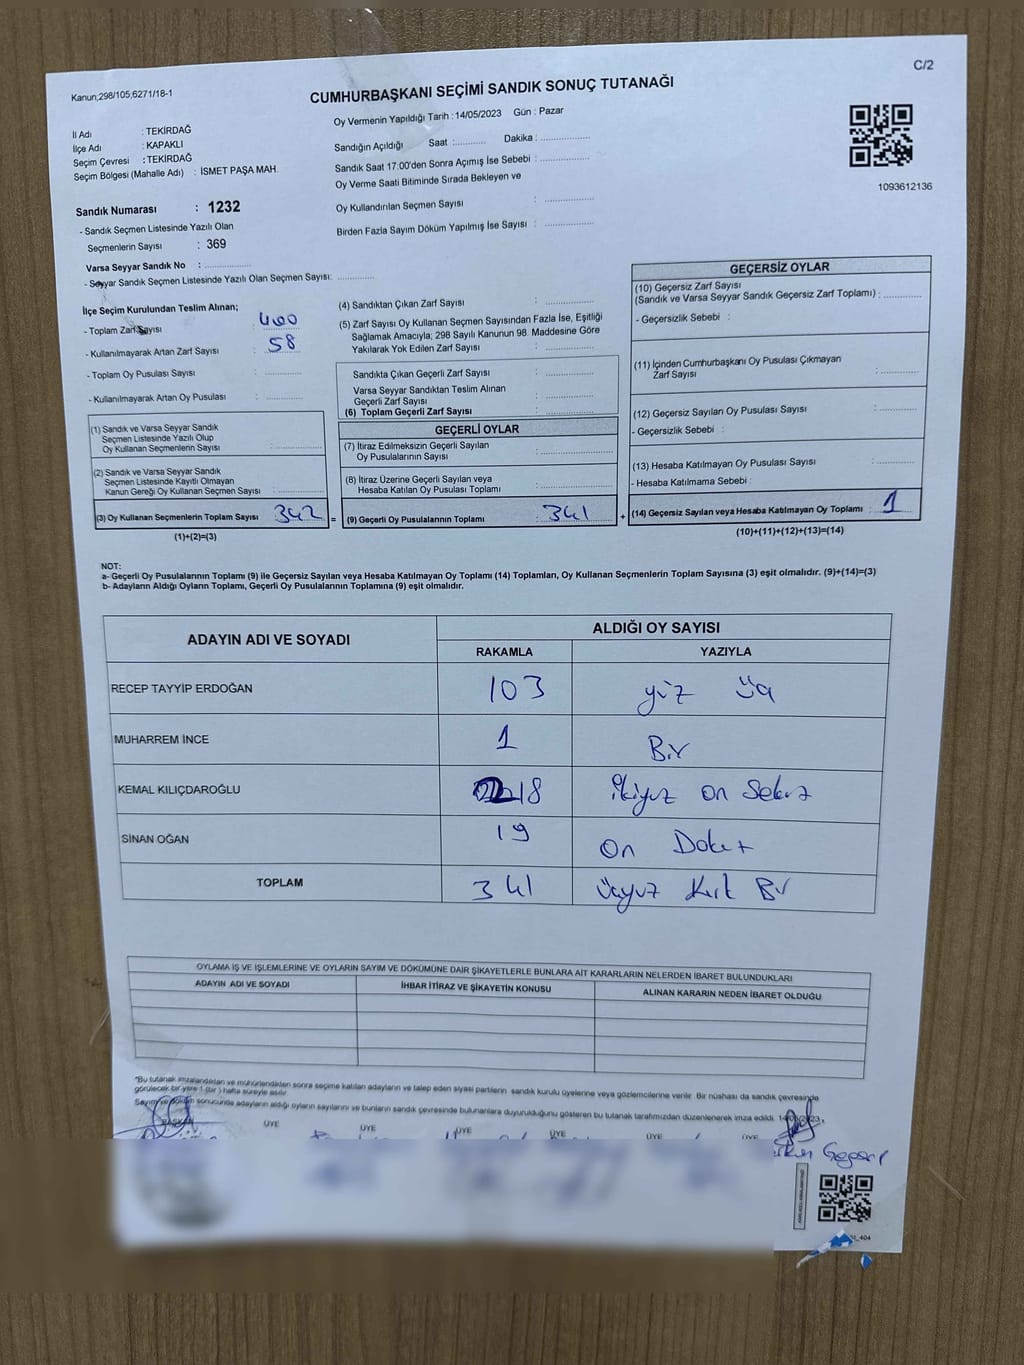 C/2
Kanun;298/105,6271/18-1
CUMHURBAŞKANI SEÇİMİ SANDIK SONUÇ TUTANAĞI
Oy Vermenin Yapıldığı Tarih : 14/05/2023 Gün : Pazar
İl Adı : TEKİRDAĞ
İlçe Adı : KAPAKLI
Seçim Çevresi : TEKİRDAĞ
Seçim Bölgesi (Mahalle Adı) : İSMET PAŞA MAH.
Sandığın Açıldığı Saat : Dakika :
Sandık Saat 17:00'den Sonra Açımış İse Sebebi :
Oy Verme Saati Bitiminde Sırada Bekleyen ve
Oy Kullandırılan Seçmen Sayısı :
Birden Fazla Sayım Döküm Yapılmış İse Sayısı :
1093612136
Sandık Numarası : 1232
- Sandık Seçmen Listesinde Yazılı Olan
Seçmenlerin Sayısı : 369
Varsa Seyyar Sandık No :
- Seyyar Sandık Seçmen Listesinde Yazılı Olan Seçmen Sayısı:
İlçe Seçim Kurulundan Teslim Alınan;
- Toplam Zarf Sayısı : 400
- Kullanılmayarak Artan Zarf Sayısı : 58
- Toplam Oy Pusulası Sayısı :
- Kullanılmayarak Artan Oy Pusulası :
(1) Sandık ve Varsa Seyyar Sandık
Seçmen Listesinde Yazılı Olup
Oy Kullanan Seçmenlerin Sayısı :
(2) Sandık ve Varsa Seyyar Sandık
Seçmen Listesinde Kayıtlı Olmayan
Kanun Gereği Oy Kullanan Seçmen Sayısı :
(3) Oy Kullanan Seçmenlerin Toplam Sayısı 342 =
(1)+(2)=(3)
(4) Sandıktan Çıkan Zarf Sayısı :
(5) Zarf Sayısı Oy Kullanan Seçmen Sayısından Fazla İse, Eşitliği
Sağlamak Amacıyla; 298 Sayılı Kanunun 98. Maddesine Göre
Yakılarak Yok Edilen Zarf Sayısı :
Sandıkta Çıkan Geçerli Zarf Sayısı :
Varsa Seyyar Sandıktan Teslim Alınan
Geçerli Zarf Sayısı :
(6) Toplam Geçerli Zarf Sayısı :
GEÇERLİ OYLAR
(7) İtiraz Edilmeksizin Geçerli Sayılan
Oy Pusulalarının Sayısı :
(8) İtiraz Üzerine Geçerli Sayılan veya
Hesaba Katılan Oy Pusulası Toplamı :
(9) Geçerli Oy Pusulalarının Toplamı : 341 +
GEÇERSİZ OYLAR
(10) Geçersiz Zarf Sayısı
(Sandık ve Varsa Seyyar Sandık Geçersiz Zarf Toplamı) :
- Geçersizlik Sebebi :
(11) İçinden Cumhurbaşkanı Oy Pusulası Çıkmayan
Zarf Sayısı :
(12) Geçersiz Sayılan Oy Pusulası Sayısı :
- Geçersizlik Sebebi :
(13) Hesaba Katılmayan Oy Pusulası Sayısı :
- Hesaba Katılmama Sebebi :
(14) Geçersiz Sayılan veya Hesaba Katılmayan Oy Toplamı : 1
(10)+(11)+(12)+(13)=(14)
NOT:
a- Geçerli Oy Pusulalarının Toplamı (9) ile Geçersiz Sayılan veya Hesaba Katılmayan Oy Toplamı (14) Toplamları, Oy Kullanan Seçmenlerin Toplam Sayısına (3) eşit olmalıdır. (9)+(14)=(3)
b- Adayların Aldığı Oyların Toplamı, Geçerli Oy Pusulalarının Toplamına (9) eşit olmalıdır.
ADAYIN ADI VE SOYADI ALDIĞI OY SAYISI
RAKAMLA YAZIYLA
RECEP TAYYİP ERDOĞAN 103 yüz üç
MUHARREM İNCE 1 Bir
KEMAL KILIÇDAROĞLU 218 ikiyüz on sekiz
SİNAN OĞAN 19 on Dokuz
TOPLAM 341 üçyüz kırk Bir
OYLAMA İŞ VE İŞLEMLERİNE VE OYLARIN SAYIM VE DÖKÜMÜNE DAİR ŞİKAYETLERLE BUNLARA AİT KARARLARIN NELERDEN İBARET BULUNDUKLARI
ADAYIN ADI VE SOYADI İHBAR İTİRAZ VE ŞİKAYETİN KONUSU ALINAN KARARIN NEDEN İBARET OLDUĞU
"Bu tutanak imzalandıktan ve mühürlendikten sonra seçime katılan adayların ve talep eden siyasi partilerin sandık kurulu üyelerine veya gözlemcilerine verilir. Bir nüshası da sandık çevresinde
görülecek bir yere 1 (bir ) hafta süreyle asılır.
Sayım ve döküm sonucunda adayların aldığı oyların sayılarını ve bunların sandık çevresinde bulunanlara duyurulduğunu gösteren bu tutanak tarafımızdan düzenlenerek imza edildi.
BAŞKAN ÜYE ÜYE ÜYE ÜYE ÜYE ÜYE